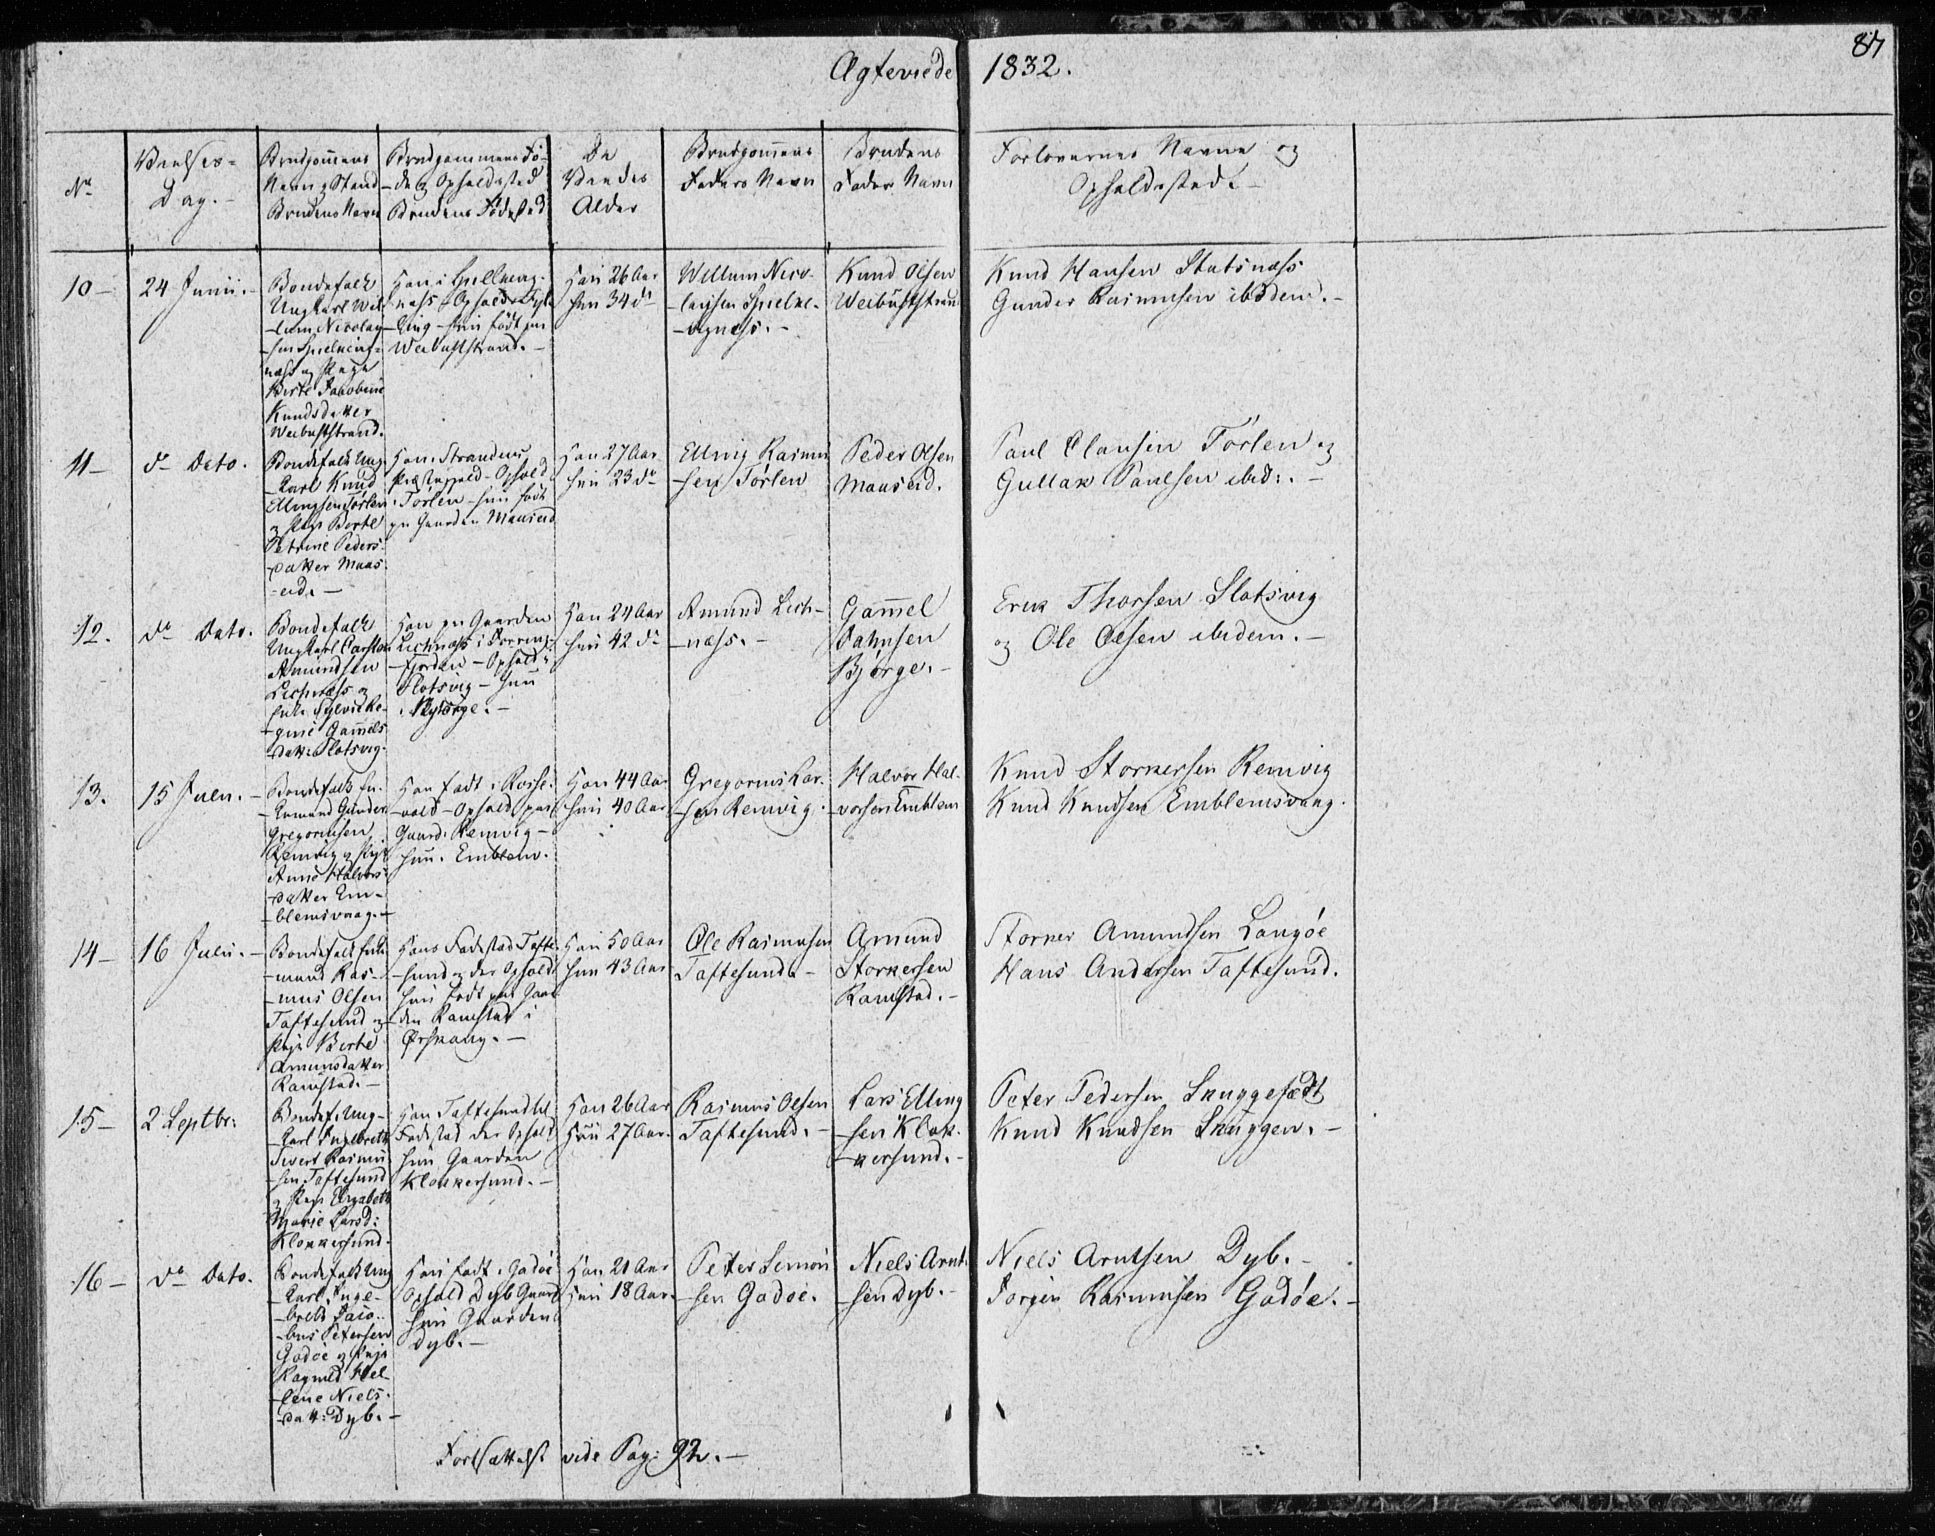 Ægteviede 1832.
87
No
Vielses-
Dag.-
Brudgommens
Navn og Stand
Brudens Navn
Brudgommens Fö-
-de og Opholdssted
Brudens Födested
De
Viedes
Alder
Brudgommens
Faders Navn
Brudens
Fader Navn
Forlovernes Navne og
Opholdssted.-
10-
24 Junii.-
Bondefolk
Ungkarl Wil-
-lum Nicolay-
-sen
næss og Pige
Birte Jacobine
Knudsdatter
Weibustsstrand.
Han i
næss - Ophold
-ling - hun födt paa
Weibustsstrand.-
Han 26 Aar
Hun 34 do
Willum Nico-
-laysen
-næss.-
Knud Olsen
Weibustsstrand
Knud Hansen Slatsnæss
Gunder Rasmusen ibidem.-
11-
do Dato.
Bondefolk Ung-
-karl Knud
Ellingsen Törlen
og Pige Berte
Petrine Peders-
-datter Maas-
-eid.-
Han Strandens
Præstegjeld - Ophold
Törlen - hun födt
paa Gaarden Maaseid
Han 27 Aar
Hun 23 do
Elling Rasmu-
sen Törlen
Peder Olsen
Maaseid.
Paul Clausen Törlen og
Gullak Paulsen ibid:.-
12.
do Dato.
Bondefolk
Ungkarl Carsten
Amundsen
næss og
Enke Sylvie Re-
-gine Gammels-
-datt: Slotsvig.
Han paa Gaarden
næss i
-fjorden - Ophold
Slotsvig - hun
i Bjørge.-
Han 24 Aar
Hun 42 do
Amund
-næss.-
Gammel
Bjørge.-
Erik Thorsen Slotsvig
og Ole Olsen ibidem.-
13.
15 Julii.-
Bondefolk En-
-kemand Gunder
Gregoriusen
Remvig og Pige
Anne Halvors-
-datter Em-
-blemsvaag.-
Han födt i
-vold - Ophold paa
Gaard: Remvig -
hun: Emblem.
Han 44 Aar
Hun 40 Aar
Gregorius Lar-
-sen Remvig.
Halvor Hal-
vorsen Emblem
Knud Storkersen Remvig
Knud Knudsen Emblemsvaag.
14-
16 Julii.-
Bondefolk Enke-
-mand Ras-
-mus Olsen
Taftesund og
Pige Birte
Amunsdatter
Ramstad.-
Hans Fødested Tafte-
-sund og der Ophold
hun Födt paa Gaar-
-den Ramstad i
Ørskoug.-
Han 50 Aar
Hun 43 Aar
Ole Rasmusen
Taftesund.-
Amund
Storkersen
Ramstad.-
Storker Amundsen Langöe
Hans Andersen Taftesund.
15-
2 Septbr:
Bondef: Ung-
-karl Ingebrett
Sivert Rasmu-
-sen Taftesund
og Pige Elisabeth
Marie Larsd:
Klokkersund.
Han Taftesund
Fødested der Ophold
hun Gaarden
Klokkersund.-
Han 26 Aar
Hun 27 Aar.
Rasmus Olsen
Taftesund.-
Lars Elling-
-sen Klok-
-kersund.-
Peter Pedersen
Knud Knudsen Snuggen.-
16-
do Dato.
Bondefolk Ung-
-karl Inge-
-brett Jaco-
-bus Petersen
Godöe og Pige
Ragnild Hel-
-lene Niels-
-datt: Dyb.-
Han födt i Godöe
Ophold Dyb Gaard
hun Gaarden
Dyb.-
Han 21 Aar
Hun 18 Aar.
Peter Simon-
-sen Godöe.
Niels Arnt-
-sen Dyb.-
Niels Arntsen Dyb.-
Jörgen Rasmusen Godöe.-
Fortsættelse vide Pag: 92.-